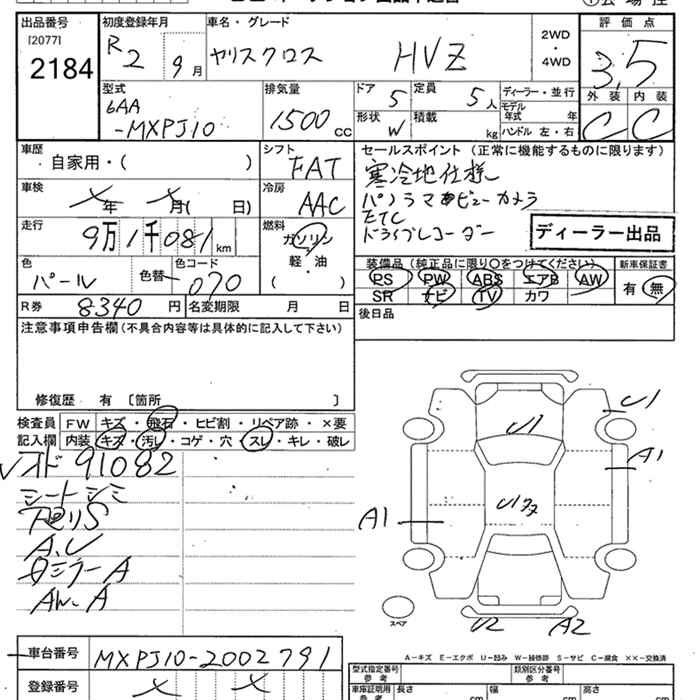 出品番号 初度登録年月 車名・グレード 2WD・4WD 評価点
[2077]
2184 R2 9月 ヤリスクロス HVZ 3.5
外装 内装
C C
型式 排気量 ドア 定員 ディーラー・並行
6AA
-MXPJ10 1500CC 5 5人 モデル年式 年
形状 積載 ハンドル 左・右
W kg
車歴 シフト セールスポイント (正常に機能するものに限ります)
自家用・( ) FAT 寒冷地仕様
車検 冷房 パノラマビューカメラ
年 月( 日) AAC ETC
走行 燃料 ドライブレコーダー
9万1千081km ガソリン・軽油 ディーラー出品
( )
色 色替 色コード 装備品 (純正品に限り○をつけてください) 新車保証書
パール 070 PS PW ABS エアB AW 有 無
SR ナビ TV カワ
R券 8340円 名変期限 月 日 後日品
注意事項申告欄(不具合内容等は具体的に記入して下さい)
修復歴 有 〔箇所 〕
検査員 FW キズ・飛石・ヒビ割・リペア跡・×要
記入欄 内装 キズ・汚レ・コゲ・穴・スレ・キレ・破レ
91082
シートシミ
A.U
ミラーA
U1
U1
A1
A1
U2 A2
スペア
A-キズ E-エクボ U-凹み W-補修跡 S-サビ C-腐食 ××-交換済
車台番号 MXPJ10-2002791
登録番号
型式指定番号 参考 類別区分番号 参考
車庫証明用 参考 長さ cm 幅 cm 高さ cm